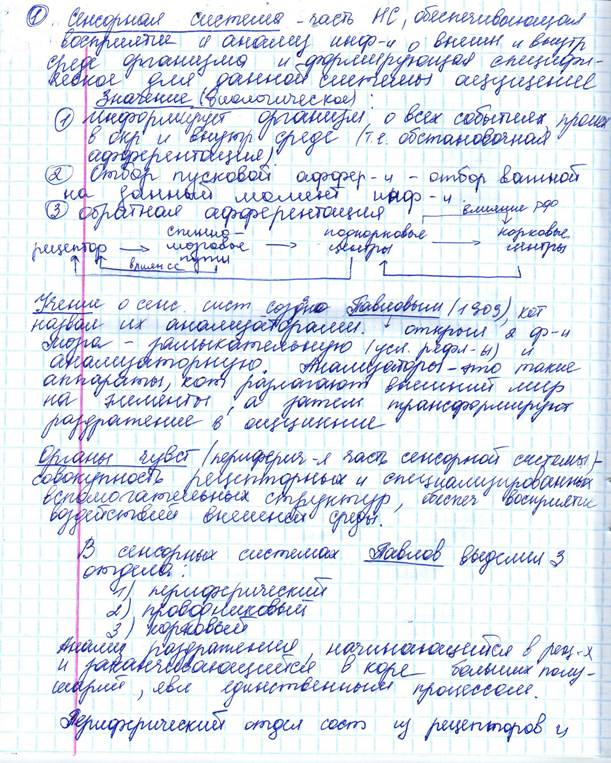 ① Сенсорная система - часть НС, обеспечивающая
восприятие и анализ инф-и о внешн и внутр
среде организма и формирующая специфи-
ческое для данной системы ощущение
Значение (биологическое):
① информирует организм о всех событиях, происх
в окр и внутр среде (т.е. обстановочная
афферентация)
② Отбор пусковой аффер-и - отбор важной
на данный момент инф-и
③ обратная афферентация влияние РФ
рецептор → спинно-мозговые пути → подкорковые центры → корковые центры
Учение о сенс. сист. создано Павловым (1909), кот
назвал их анализаторами. открыл 2 ф-и
мозга - замыкательную (усл. рефл-ы) и
анализаторную. Анализаторы - это такие
аппараты, кот разлагают внешний мир
на элементы, а затем трансформируют
раздражение в ощущение
Органы чувст (периферич-я часть сенсорной системы) -
совокупность рецепторных и специализированных
вспомогательных структур, обеспеч восприятие
воздействий внешней среды.
В сенсорных системах Павлов выделил 3
отдела:
1) периферический
2) проводниковый
3) корковый
Анализ раздражения, начинающейся в рец-х
и заканчивающейся в коре больших полу-
шарий, явл единственным процессом.
Периферический отдел сост из рецепторов и